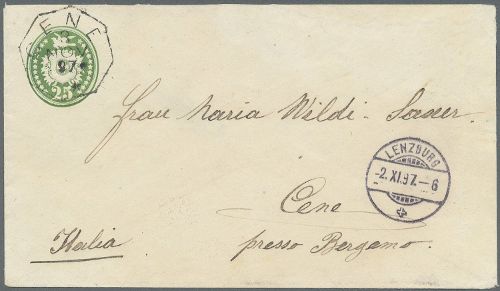 CENE
97
25
Frau Maria Wildi-Saxer.
LENZBURG
-2.XI.97.-6
Cene
Italia
presso Bergamo.